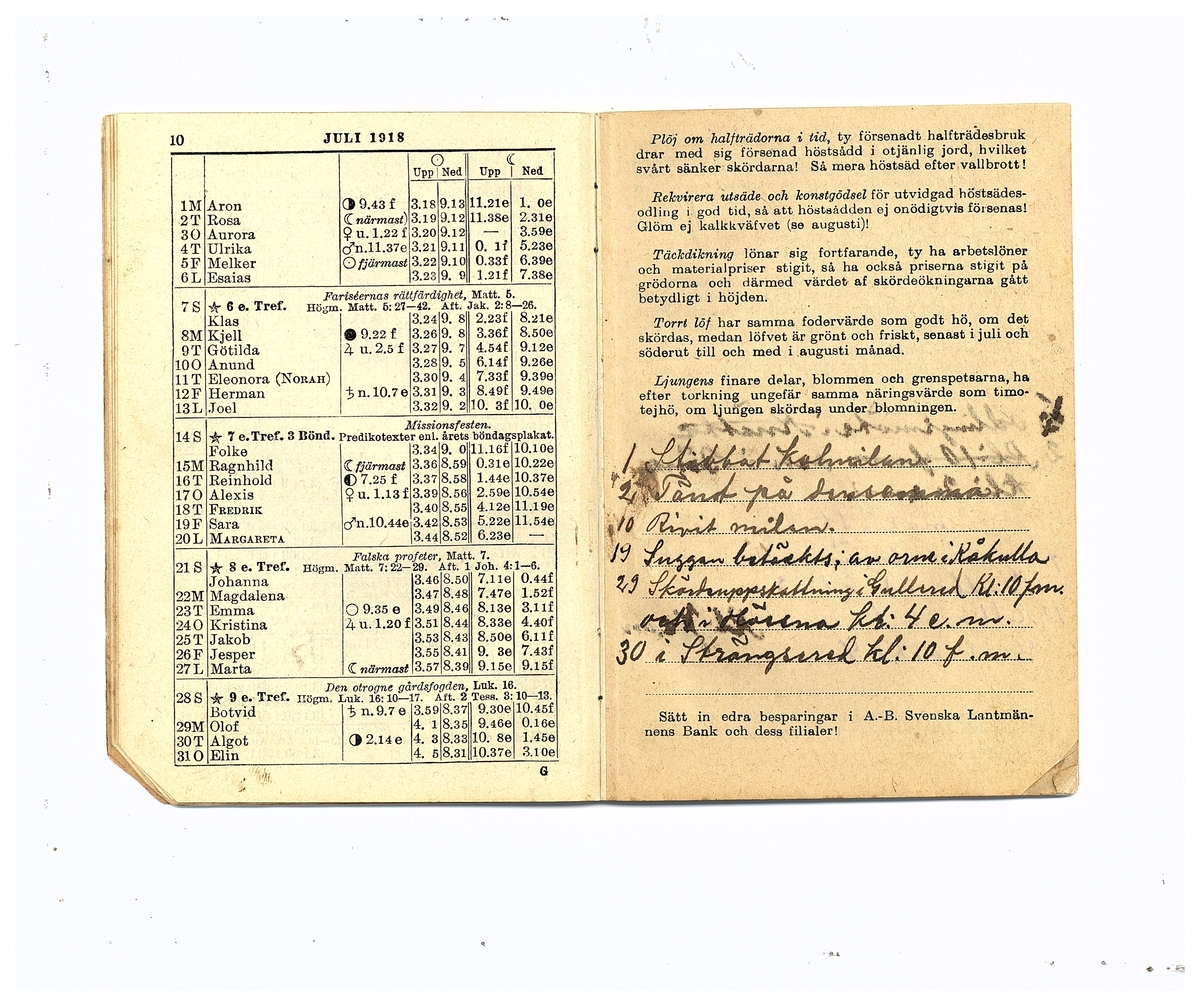 10 JULI 1918
☉ ☾
Upp Ned Upp Ned
1 M Aron ◑ 9.43 f 3.18 9.13 11.21e 1. 0e
2 T Rosa ☾ närmast 3.19 9.12 11.38e 2.31e
3 O Aurora ♀ u. 1.22 f 3.20 9.12 — 3.59e
4 T Ulrika ♂ n. 11.37e 3.21 9.11 0. 1f 5.23e
5 F Melker ☉ fjärmast 3.22 9.10 0.33f 6.39e
6 L Esaias 3.23 9. 9 1.21f 7.38e
Fariséernas rättfärdighet, Matt. 5.
7 S ★ 6 e. Tref. Högm. Matt. 5: 27—42. Aft. Jak. 2: 8—26.
Klas 3.24 9. 8 2.23f 8.21e
8 M Kjell ● 9.22 f 3.26 9. 8 3.36f 8.50e
9 T Götilda ♃ u. 2.5 f 3.27 9. 7 4.54f 9.12e
10 O Anund 3.28 9. 5 6.14f 9.26e
11 T Eleonora (NORAH) 3.30 9. 4 7.33f 9.39e
12 F Herman ♄ n. 10.7 e 3.31 9. 3 8.49f 9.49e
13 L Joel 3.32 9. 2 10. 3f 10. 0e
Missionsfesten.
14 S ★ 7 e. Tref. 3 Bönd. Predikotexter enl. årets böndagsplakat.
Folke 3.34 9. 0 11.16f 10.10e
15 M Ragnhild ☾ fjärmast 3.36 8.59 0.31e 10.22e
16 T Reinhold ◐ 7.25 f 3.37 8.58 1.44e 10.37e
17 O Alexis ♀ u. 1.13 f 3.39 8.56 2.59e 10.54e
18 T FREDRIK 3.40 8.55 4.12e 11.19e
19 F Sara ♂ n. 10.44e 3.42 8.53 5.22e 11.54e
20 L MARGARETA 3.44 8.52 6.23e —
Falska profeter, Matt. 7.
21 S ★ 8 e. Tref. Högm. Matt. 7: 22—29. Aft. 1 Joh. 4: 1—6.
Johanna 3.46 8.50 7.11e 0.44f
22 M Magdalena 3.47 8.48 7.47e 1.52f
23 T Emma ○ 9.35 e 3.49 8.46 8.13e 3.11f
24 O Kristina ♃ u. 1.20 f 3.51 8.44 8.33e 4.40f
25 T Jakob 3.53 8.43 8.50e 6.11f
26 F Jesper 3.55 8.41 9. 3e 7.43f
27 L Marta ☾ närmast 3.57 8.39 9.15e 9.15f
Den otrogne gårdsfogden, Luk. 16.
28 S ★ 9 e. Tref. Högm. Luk. 16: 10—17. Aft. 2 Tess. 3: 10—13.
Botvid ♄ n. 9.7 e 3.59 8.37 9.30e 10.45f
29 M Olof 4. 1 8.35 9.46e 0.16e
30 T Algot ◑ 2.14 e 4. 3 8.33 10. 8e 1.45e
31 O Elin 4. 5 8.31 10.37e 3.10e
G
Plöj om halfträdorna i tid, ty försenadt halfträdesbruk
drar med sig försenad höstsådd i otjänlig jord, hvilket
svårt sänker skördarna! Så mera höstsäd efter vallbrott!
Rekvirera utsäde och konstgödsel för utvidgad höstsädes-
odling i god tid, så att höstsådden ej onödigtvis försenas!
Glöm ej kalkkväfvet (se augusti)!
Täckdikning lönar sig fortfarande, ty ha arbetslöner
och materialpriser stigit, så ha också priserna stigit på
grödorna och därmed värdet af skördeökningarna gått
betydligt i höjden.
Torrt löf har samma fodervärde som godt hö, om det
skördas, medan löfvet är grönt och friskt, senast i juli och
söderut till och med i augusti månad.
Ljungens finare delar, blommen och grenspetsarna, ha
efter torkning ungefär samma näringsvärde som timo-
tejhö, om ljungen skördas under blomningen.
1 Stibbat kolmilan
2 Tänt på densamma
10 Rivit milan.
19 Suggan betäckts; av orne i Råkulla
29 Skördeuppskattning i Gullered Kl: 10 f m.
och i Hössna kl: 4 e. m.
30 i Strängsered kl: 10 f. m.
Sätt in edra besparingar i A.-B. Svenska Lantmän-
nens Bank och dess filialer!